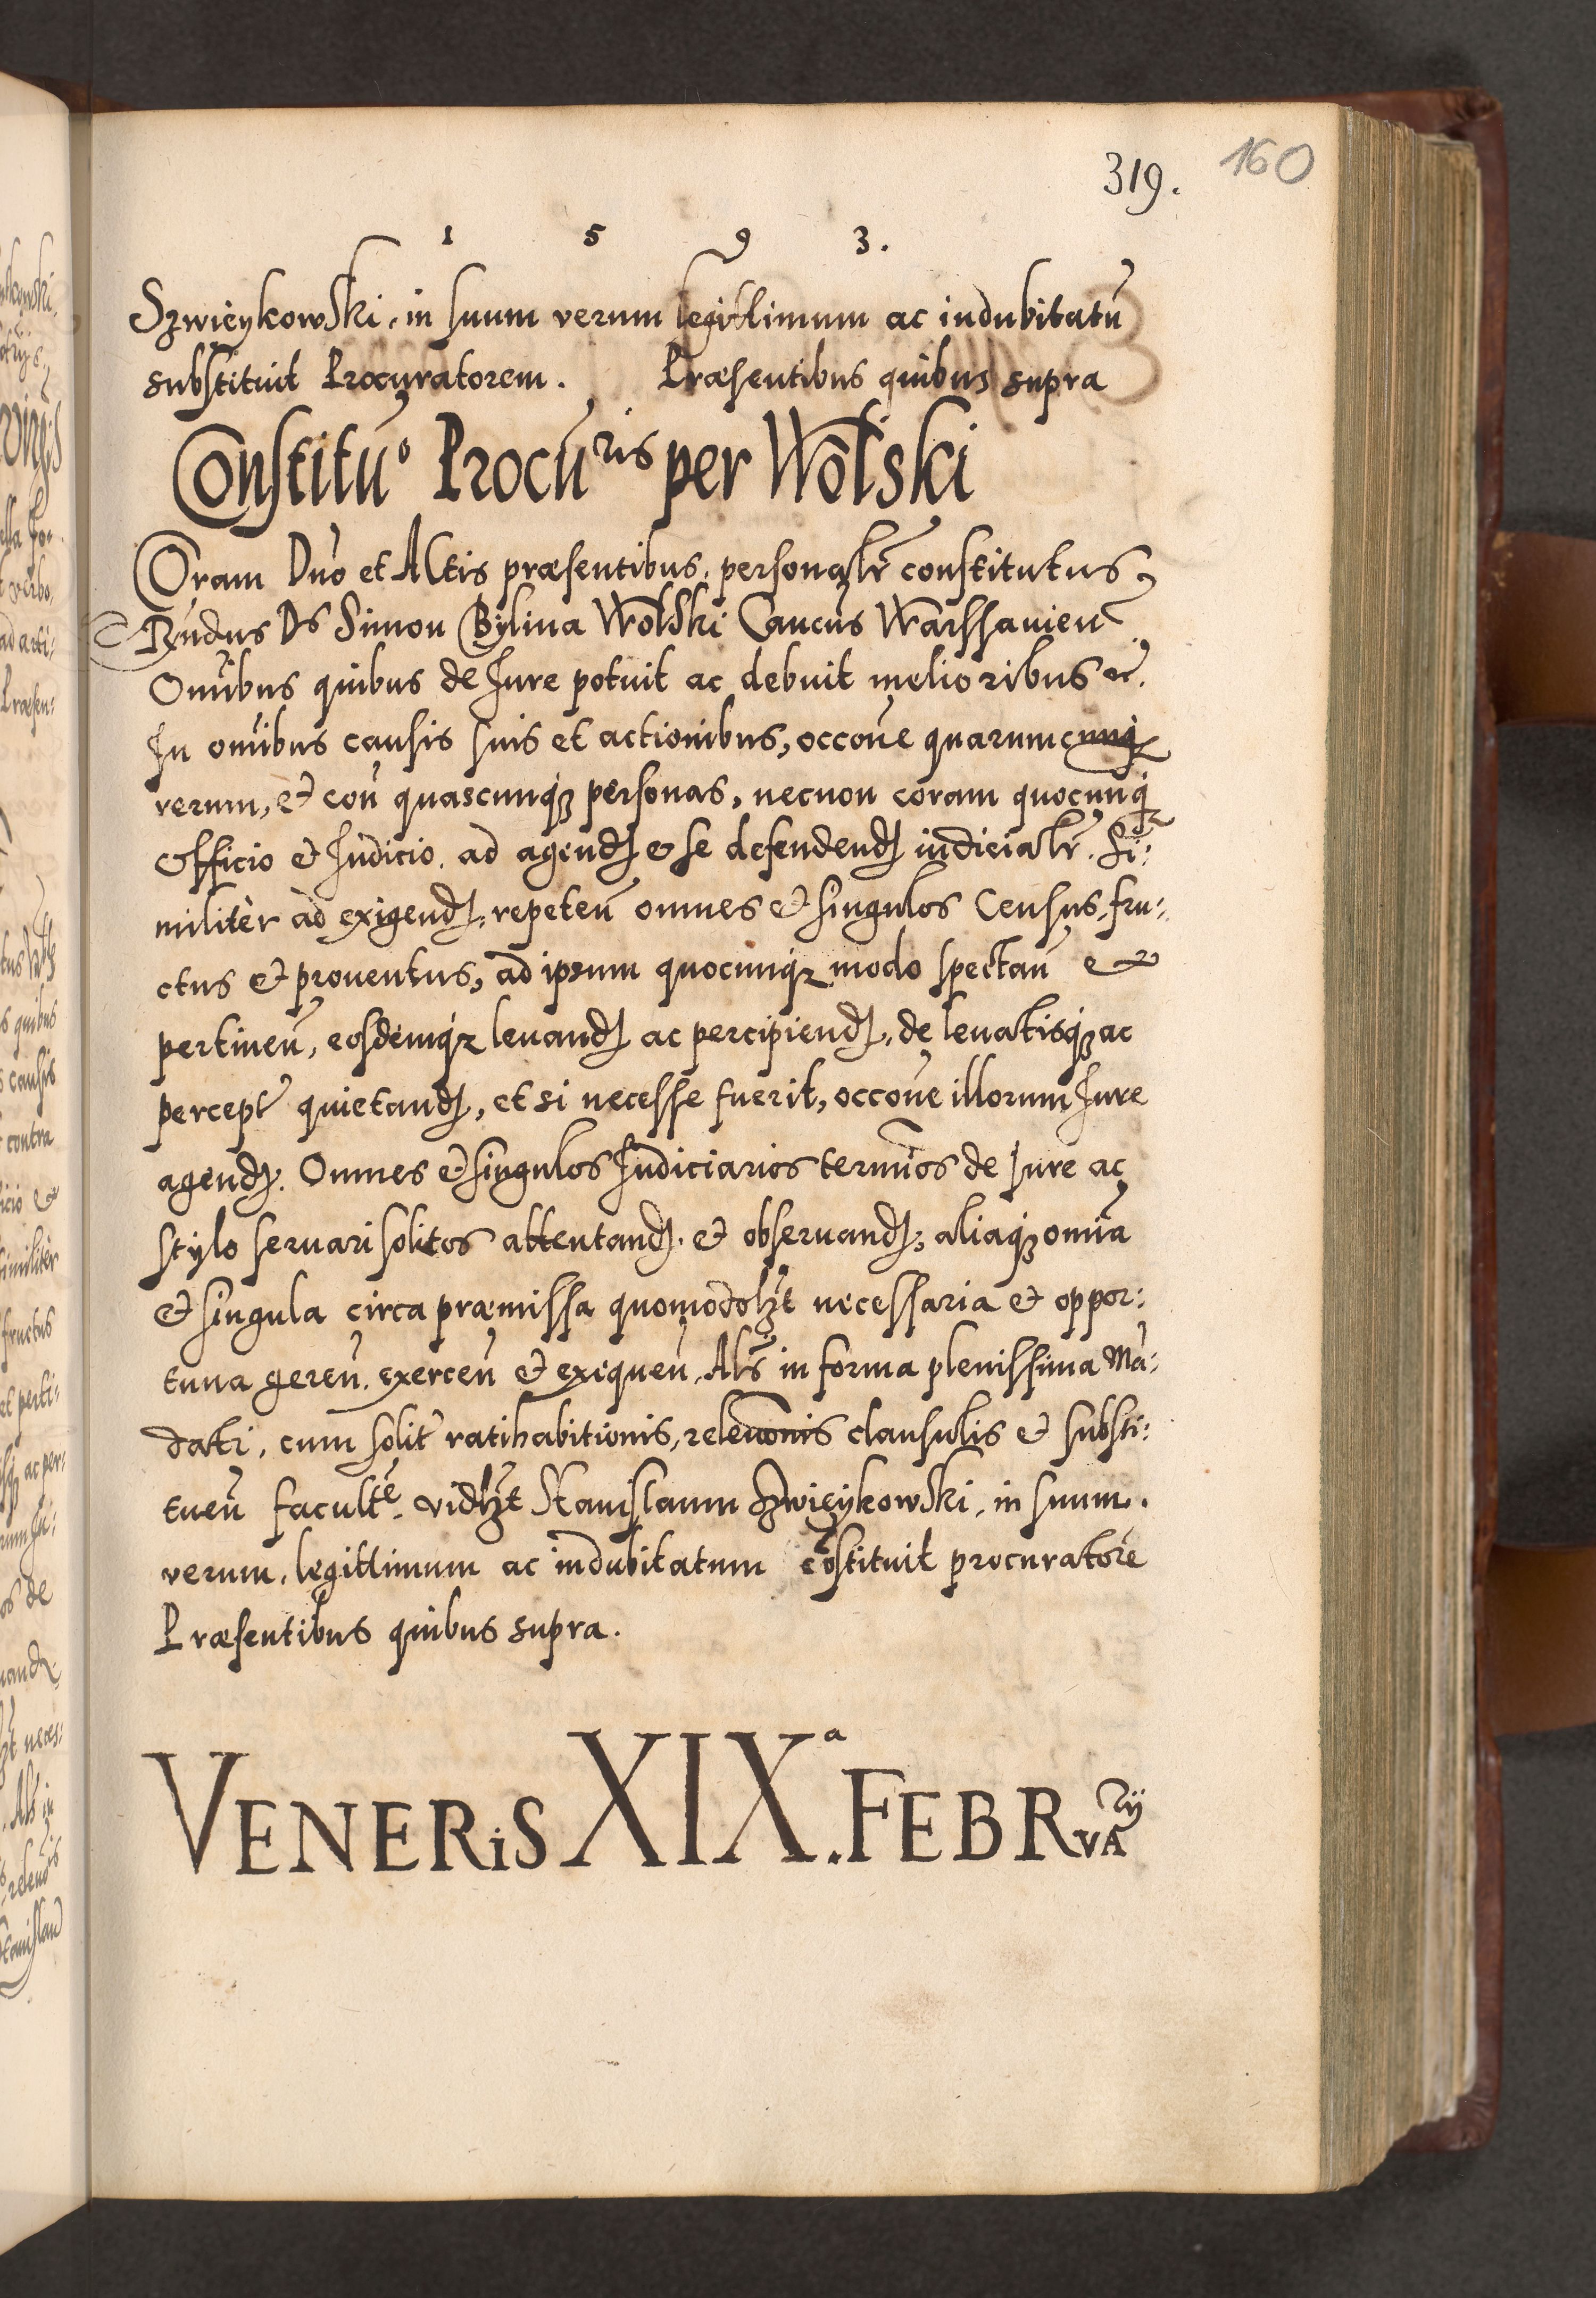 319. 160
1 5 9 3.
Szwieykowski, in suum verum legittimum ac indubitatū
substituit Procuratorem. Præsentibus quibus supra
Constituº Procuris per Wolski
Coram Dno et Actis præsentibus, personalr̄ constitutus,
Rndus Ds Simon Bylina Wolski Cancus Warssavien
Omībus quibus de Jure potuit ac debuit melioribus etc.
In omībus causis suis et actionibus, occone quarumcunq
rerum, et con quascunq personas, necnon coram quocunq
Officio et Judicio, ad agend et se defendend iudicialr̄. Si:
militèr ad exigend, repeten omnes et singulos Census, fru:
ctus et proventus, ad ipsum quocunq modo spectan et
pertinen, eosdemq levand ac percipiend, de levatisq ac
percept quietand, et si necesse fuerit, occone illorum Jure
agend. Omnes et singulos Judiciarios termīos de Jure ac
stylo servari solitos attentand. et observand, aliaq omīa
et singula circa præmissa quomodolzt necessaria et oppor:
tuna geren, exercen et exequen, Als in forma plenissima Mā:
dati, cum solit ratihabitionis, relevonis clausulis et substi:
tuen facultē, vidlzt Stanislaum Szwieykowski, in suum
verum, legittimum ac indubitatum cōstituit procuratorē
Præsentibus quibus supra.
VENERiS XIXª. FEBRVArij